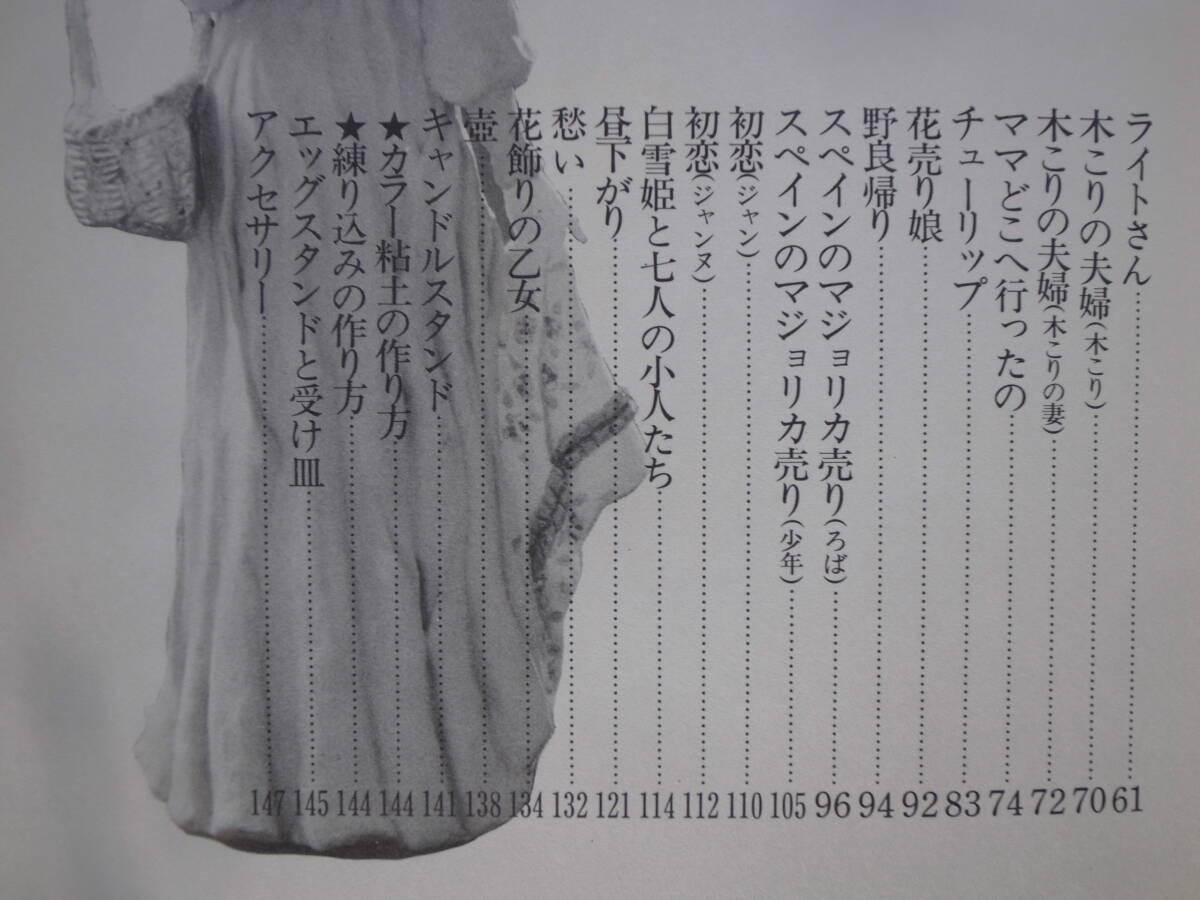 ライトさん……61
木こりの夫婦(木こり)……70
木こりの夫婦(木こりの妻)……72
ママどこへ行ったの……74
チューリップ……83
花売り娘……92
野良帰り……94
スペインのマジョリカ売り(ろば)……96
スペインのマジョリカ売り(少年)……105
初恋(ジャン)……110
初恋(ジャンヌ)……112
白雪姫と七人の小人たち……114
昼下がり……121
愁い……132
花飾りの乙女……134
壺……138
キャンドルスタンド……141
★カラー粘土の作り方……144
★練り込みの作り方……144
エッグスタンドと受け皿……145
アクセサリー……147